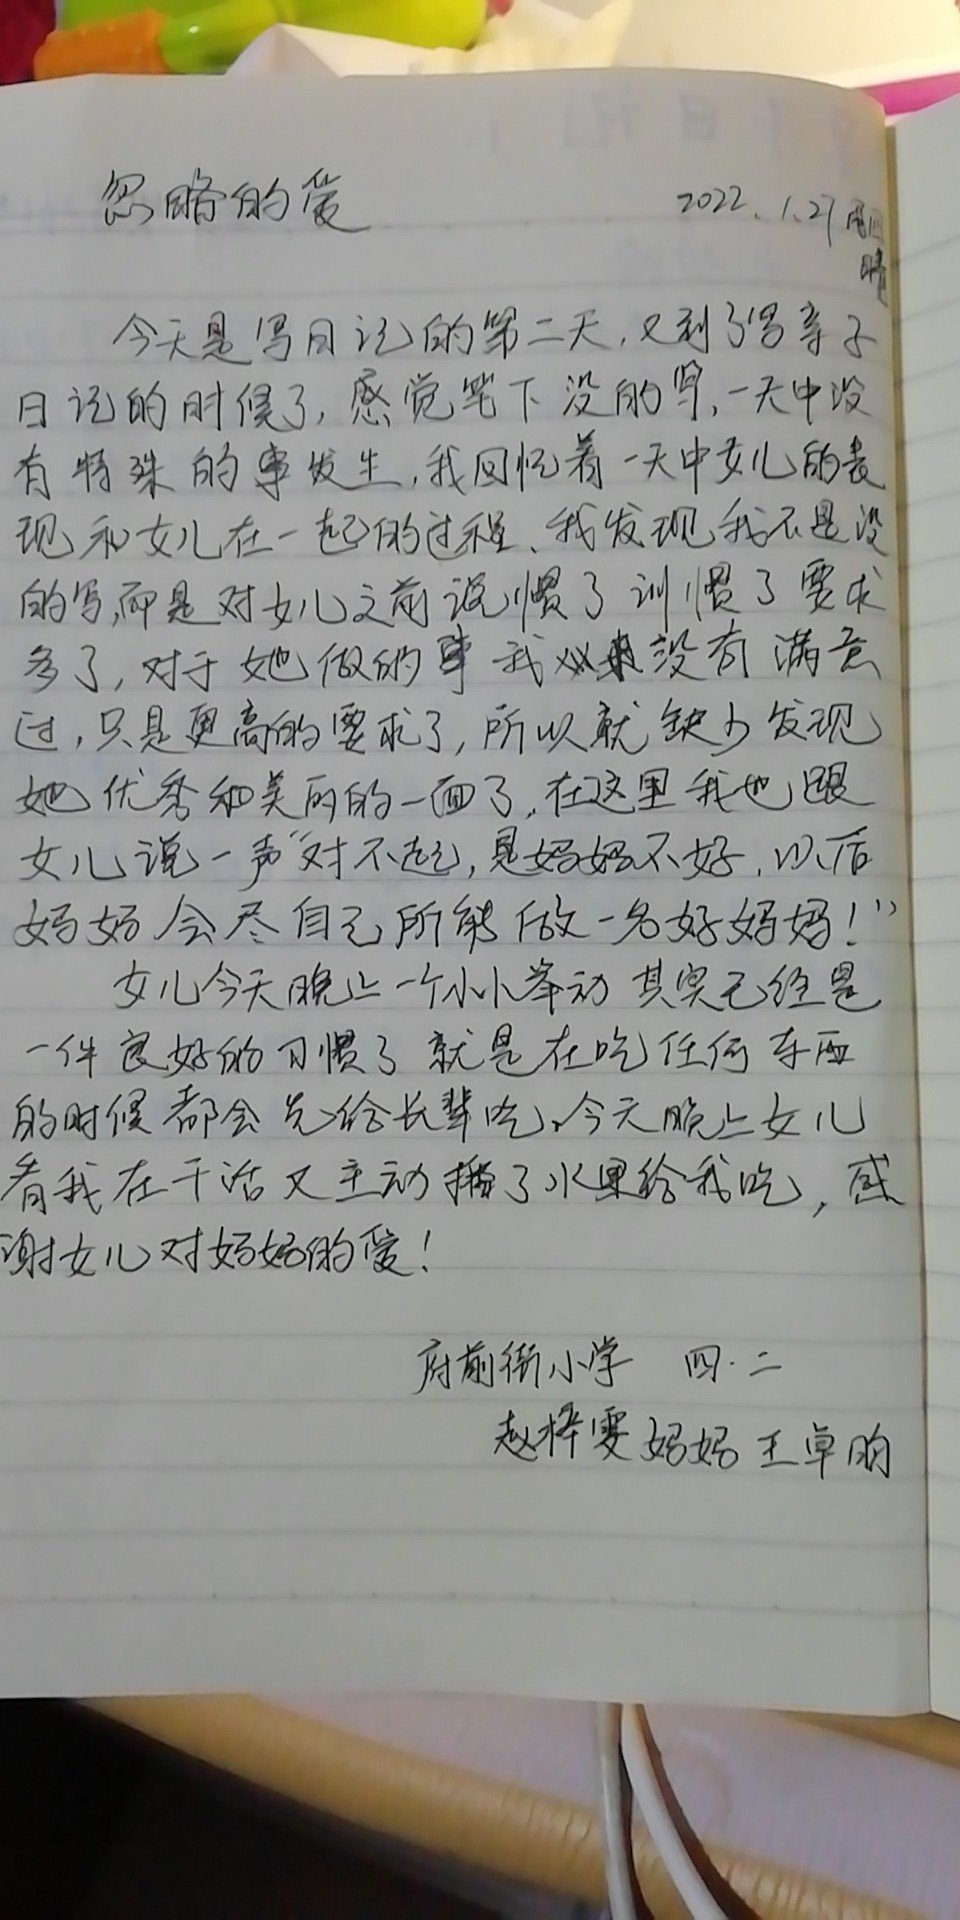 忽略的爱 2022.1.27 周四
晴
今天是写日记的第二天,又到了写亲子
日记的时候了,感觉笔下没的写,一天中没
有特殊的事发生,我回忆着一天中女儿的表
现和女儿在一起的过程、我发现我不是没
的写,而是对女儿之前说惯了训惯了要求
多了,对于她做的事我 没有满意
过,只是更高的要求了,所以就缺少发现
她优秀和美丽的一面了,在这里我也跟
女儿说一声“对不起,是妈妈不好,以后
妈妈会尽自己所能做一名好妈妈!”
女儿今天晚上一个小小举动其实已经是
一件良好的习惯了就是在吃任何东西
的时候都会先给长辈吃,今天晚上女儿
看我在干活又主动 了水果给我吃,感
谢女儿对妈妈的爱!
府前街小学 四·二
赵梓雯妈妈王卓